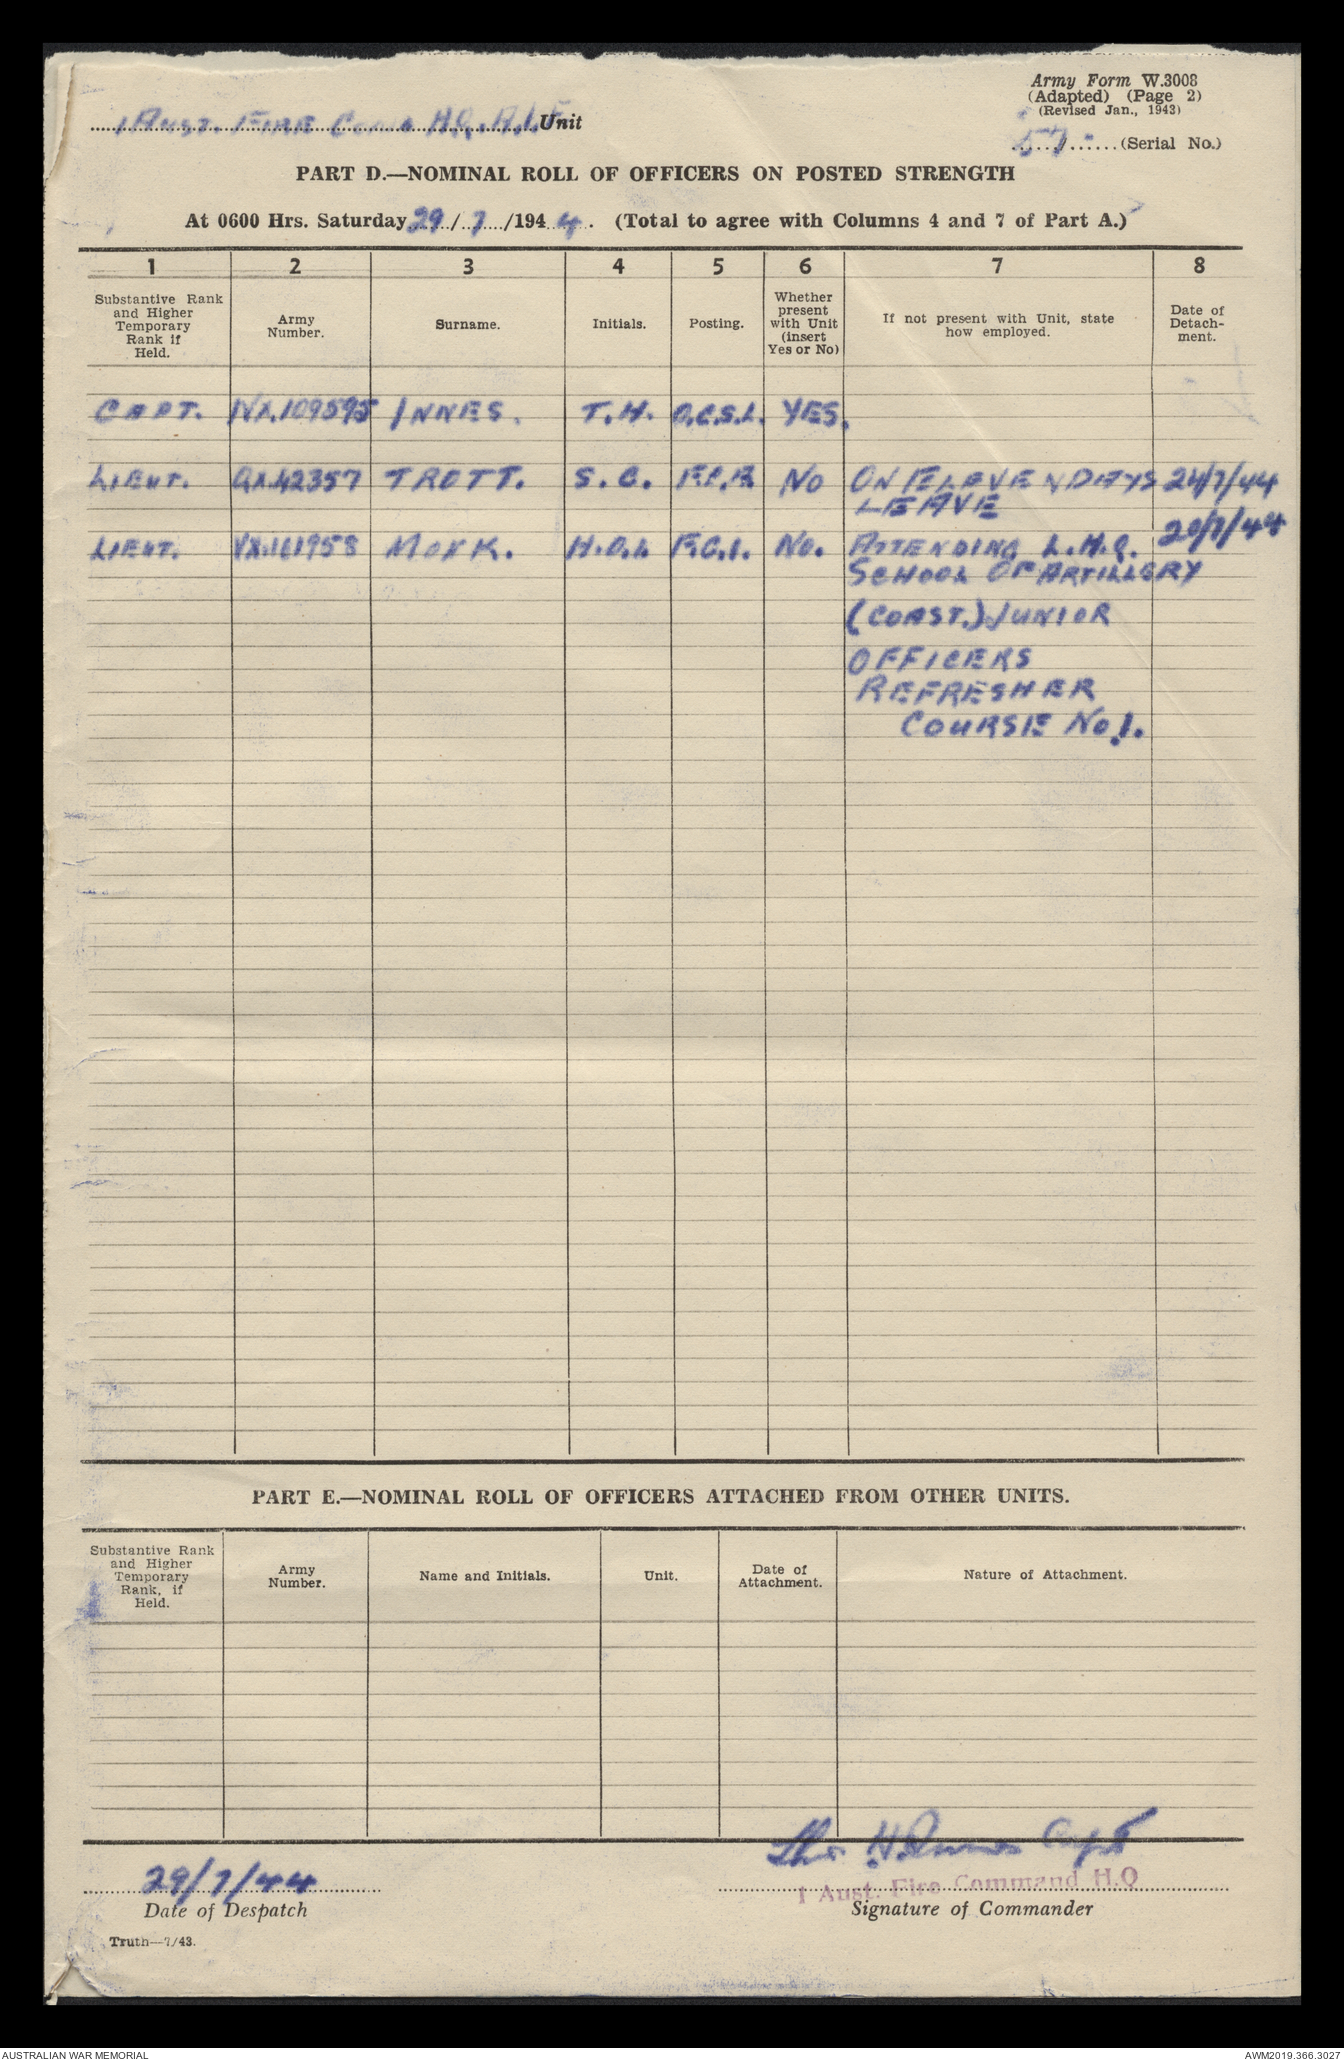 Army Form W.3008
(Adapted) (Page 2)
(Revised Jan., 1943)
1 Aust. Fire Comd H.Q. A.I.F. Unit
57 (Serial No.)
PART D.—NOMINAL ROLL OF OFFICERS ON POSTED STRENGTH
At 0600 Hrs. Saturday 29/7/1944. (Total to agree with Columns 4 and 7 of Part A.)
1 2 3 4 5 6 7 8
Substantive Rank and Higher Temporary Rank if Held.
Army Number.
Surname.
Initials.
Posting.
Whether present with Unit (insert Yes or No)
If not present with Unit, state how employed.
Date of Detach-ment.
CAPT. NX.109595 INNES. T.H. YES.
LIEUT. QX.42357 TROTT. S.C. No 24/7/44
LEAVE
LIEUT. VX.161958 MONK. No. ATTENDING L.H.Q. 20/7/44
SCHOOL OF ARTILLERY
(COAST.) JUNIOR
OFFICERS
REFRESHER
COURSE No 1.
PART E.—NOMINAL ROLL OF OFFICERS ATTACHED FROM OTHER UNITS.
Substantive Rank and Higher Temporary Rank, if Held.
Army Number.
Name and Initials.
Unit.
Date of Attachment.
Nature of Attachment.
Thos H Innes Capt
29/7/44
1 Aust. Fire Command H.Q
Date of Despatch
Signature of Commander
Truth—7/43.
AUSTRALIAN WAR MEMORIAL
AWM2019.366.3027